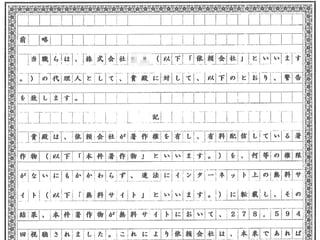 前略
当職らは、株式会社（以下「依頼会社」といいます
。）の代理人として、貴殿に対して、以下のとおり、警告
を致します。
記
貴殿は、依頼会社が著作権を有し、有料配信している著
作物（以下「本件著作物」といいます。）を、何等の権限
がないにもかかわらず、違法にインターネット上の無料サ
イト（以下「無料サイト」といいます。）に転載し、その
結果、本件著作物が無料サイトにおいて、278,594
回視聴されました。これにより依頼会社は、本来であれば